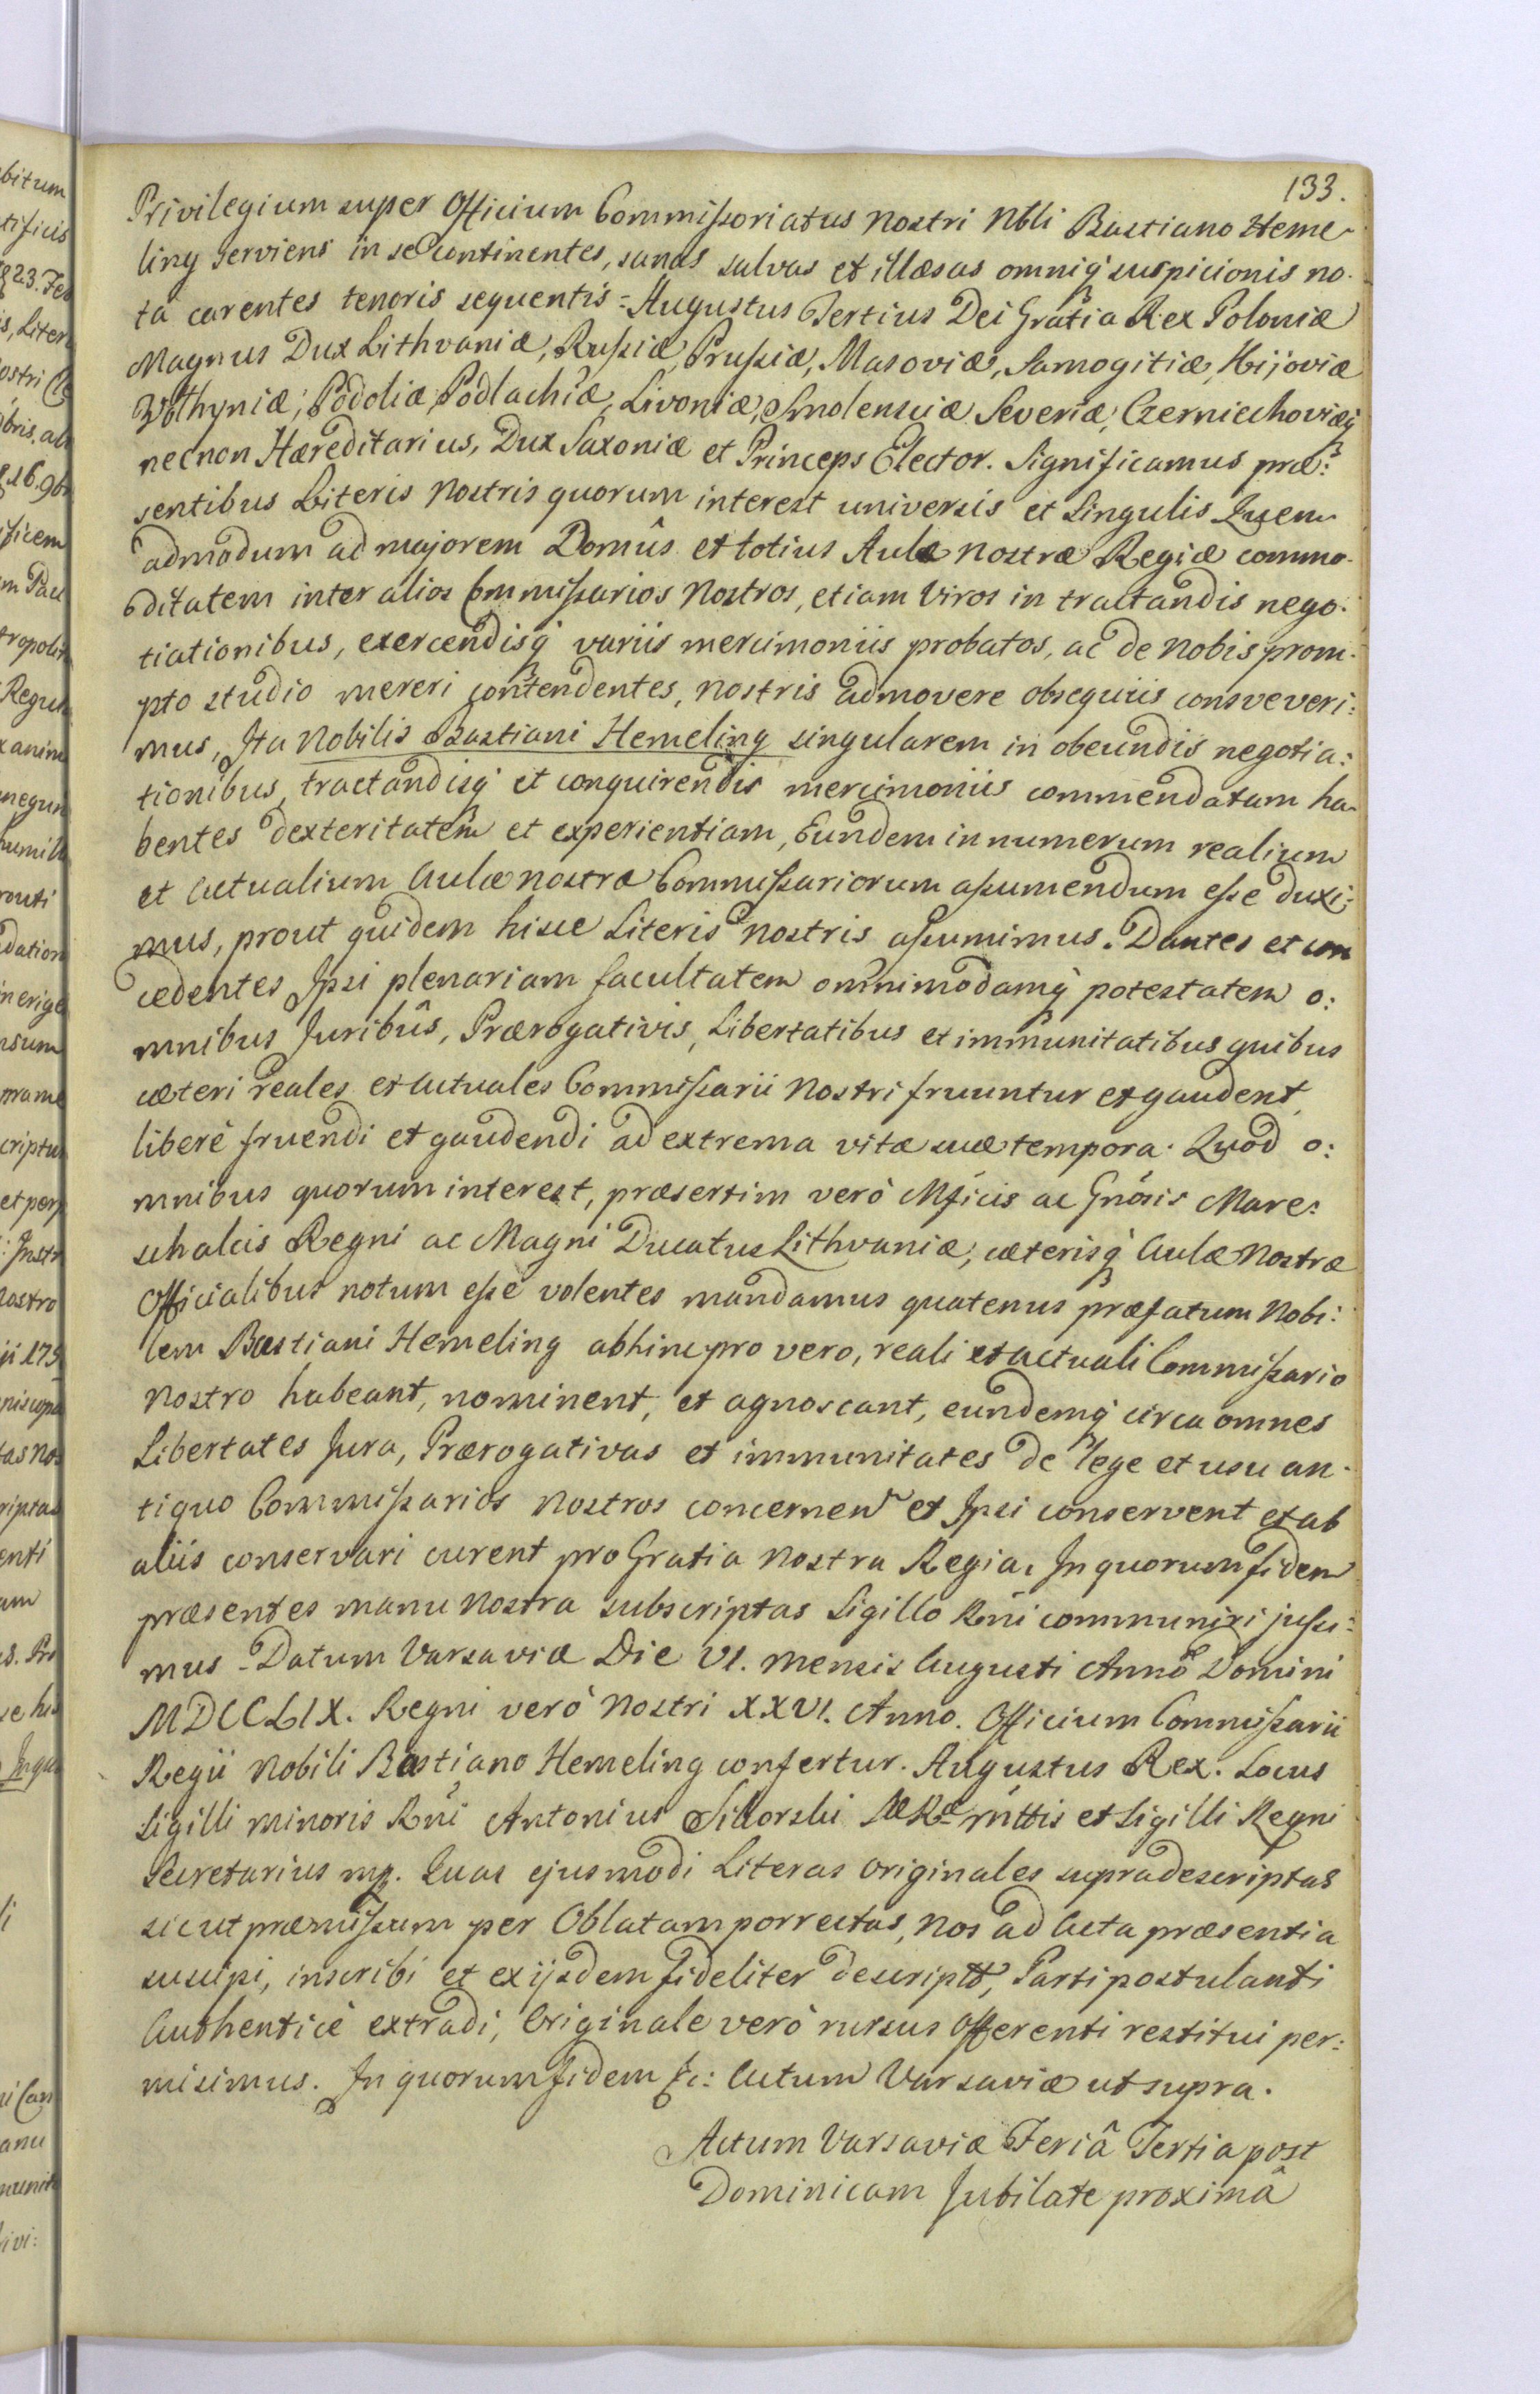 133.
Privilegium super Officium Commissoriatus Nostri Nbli Bastiano Heme-
ling serviens in se Continentes, sanas salvas et illæsas omniq́ suspicionis no-
ta carentes tenoris sequentis = Augustus Tertius Dei Gratia Rex Poloniæ
Magnus Dux Lithvaniæ, Russiæ, Prussiæ, Masoviæ, Samogitiæ, Kijoviæ
Volhyniæ, Podoliæ, Podlachiæ, Livoniæ, Smolensciæ Severiæ, Czerniechoviæq́
necnon Hæreditarius, Dux Saxoniæ et Princeps Elector. Significamus præ:
sentibus Literis Nostris quorum interest universis et Singulis Quem-
admodum ad majorem Domûs et totius Aulæ Nostræ Regiæ commo-
ditatem inter alios Commissarios Nostros, etiam Viros in tractandis nego-
tiationibus, exercendisq́ variis mercimoniis probatos, ac de Nobis prom-
pto studio mereri contendentes, Nostris admovere obsequiis consveveri:
mus, Ita Nobilis Bastiani Hemeling singularem in obeundis negotia:
tionibus, tractandisq́ et conquirendis mercimoniis commendatam ha-
bentes dexteritatem et experientiam, Eundem in numerum realium
et Actualium Aulæ Nostræ Commissariorum assumendum esse duxi:
mus, prout quidem hisce Literis Nostris assumimus. Dantes et con
cedentes Ipsi plenariam facultatem omnimodamq́ potestatem o:
mnibus Juribûs, Prærogativis, Libertatibus et immunitatibus quibus
cæteri reales et Actuales Commissarii Nostri fruuntur et gaudent,
liberè fruendi et gaudendi ad extrema vitæ suæ tempora. Quod o:
mnibus quorum interest, præsertim verò Mficis ac Gnosis Mare:
schalcis Regni ac Magni Ducatus Lithvaniæ, cæterisq́ Aulæ Nostræ
Officialibus notum esse volentes mandamus quatenus præfatum Nobi:
lem Bastiani Hemeling abhinc pro vero, reali et actuali Commissario
Nostro habeant, nominent, et agnoscant, eundemq́ circa omnes
Libertates Jura, Prærogativas et immunitates de lege et usu an-
tiquo Commissarios Nostros concernen et Ipsi conservent et ab
aliis conservari curent pro Gratia Nostra Regia. In quorum fidem
præsentes manu Nostra subscriptas Sigillo Rni communiri jussi:
mus - Datum Varsaviæ Die VI. mensis Augusti Annô Domini
MDCCLIX. Regni verò Nostri XXVI. Anno. Officium Commissarii
Regii Nobili Bastiano Hemeling confertur. Augustus Rex. Locus
Sigilli minoris Rni Antonius Sikorski SæRæ Mttis et Sigilli Regni
Secretarius mp. Quas ejusmodi Literas originales supradescriptas
sicut præmissum per Oblatam porrectas, Nos ad Acta præsentia
suscipi, inscribi et ex ijsdem fideliter descript, Parti postulanti
Authenticè extradi, Originale verò rursus Offerenti restitui per:
misimus. In quorum fidem &c: Actum Varsaviæ ut supra.
Actum Varsaviæ Feriâ Tertia post
Dominicam Jubilate proximâ